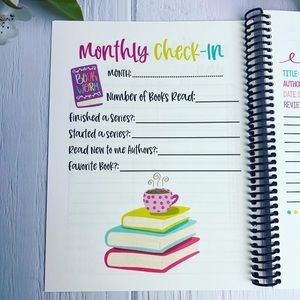 Monthly Check-In
BOOK WORM
MONTH:
Number of Books Read:
Finished a series?:
Started a series?:
Read New to me Authors?:
Favorite Book?:
TITLE:
AUTHOR
DATE S
REVIE